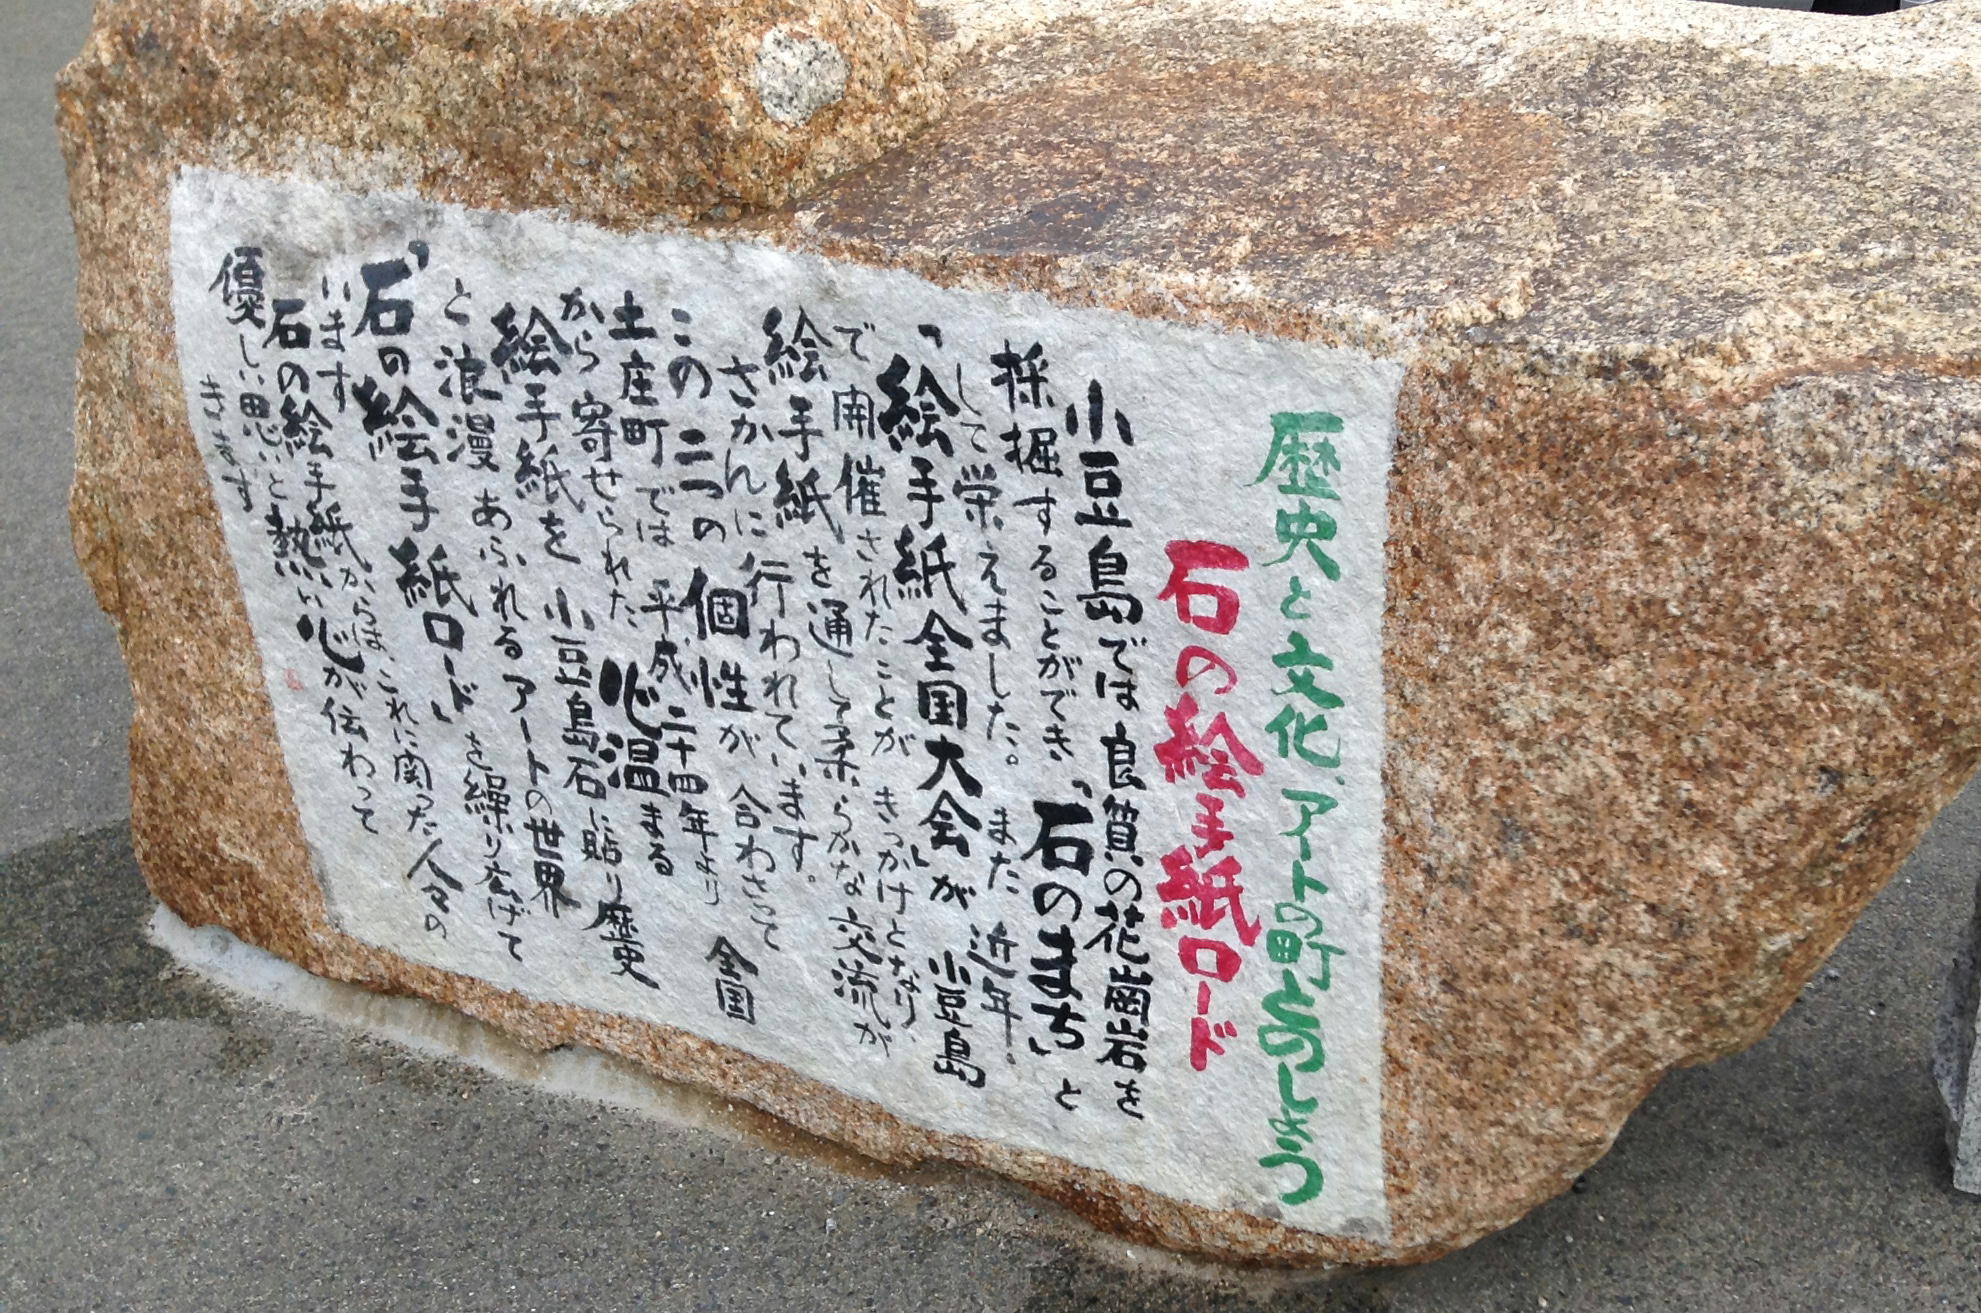 歴史と文化、アートの町とのしょう
石の絵手紙ロード
小豆島では良質の花崗岩を
採掘することができ、「石のまち」と
して栄えました。また近年。
「絵手紙全国大会」が小豆島
で開催されたことがきっかけとなり、
絵手紙を通して柔らかな交流が
さかんに行われています。
この二つの個性が合わさって
土庄町では平成二十四年より全国
から寄せられた心温まる
絵手紙を小豆島石に貼り歴史
と浪漫あふれるアートの世界
「石の絵手紙ロード」を繰り広げて
います
石の絵手紙からは、これに関った人々の
優しい思いと熱い心が伝わって
きます